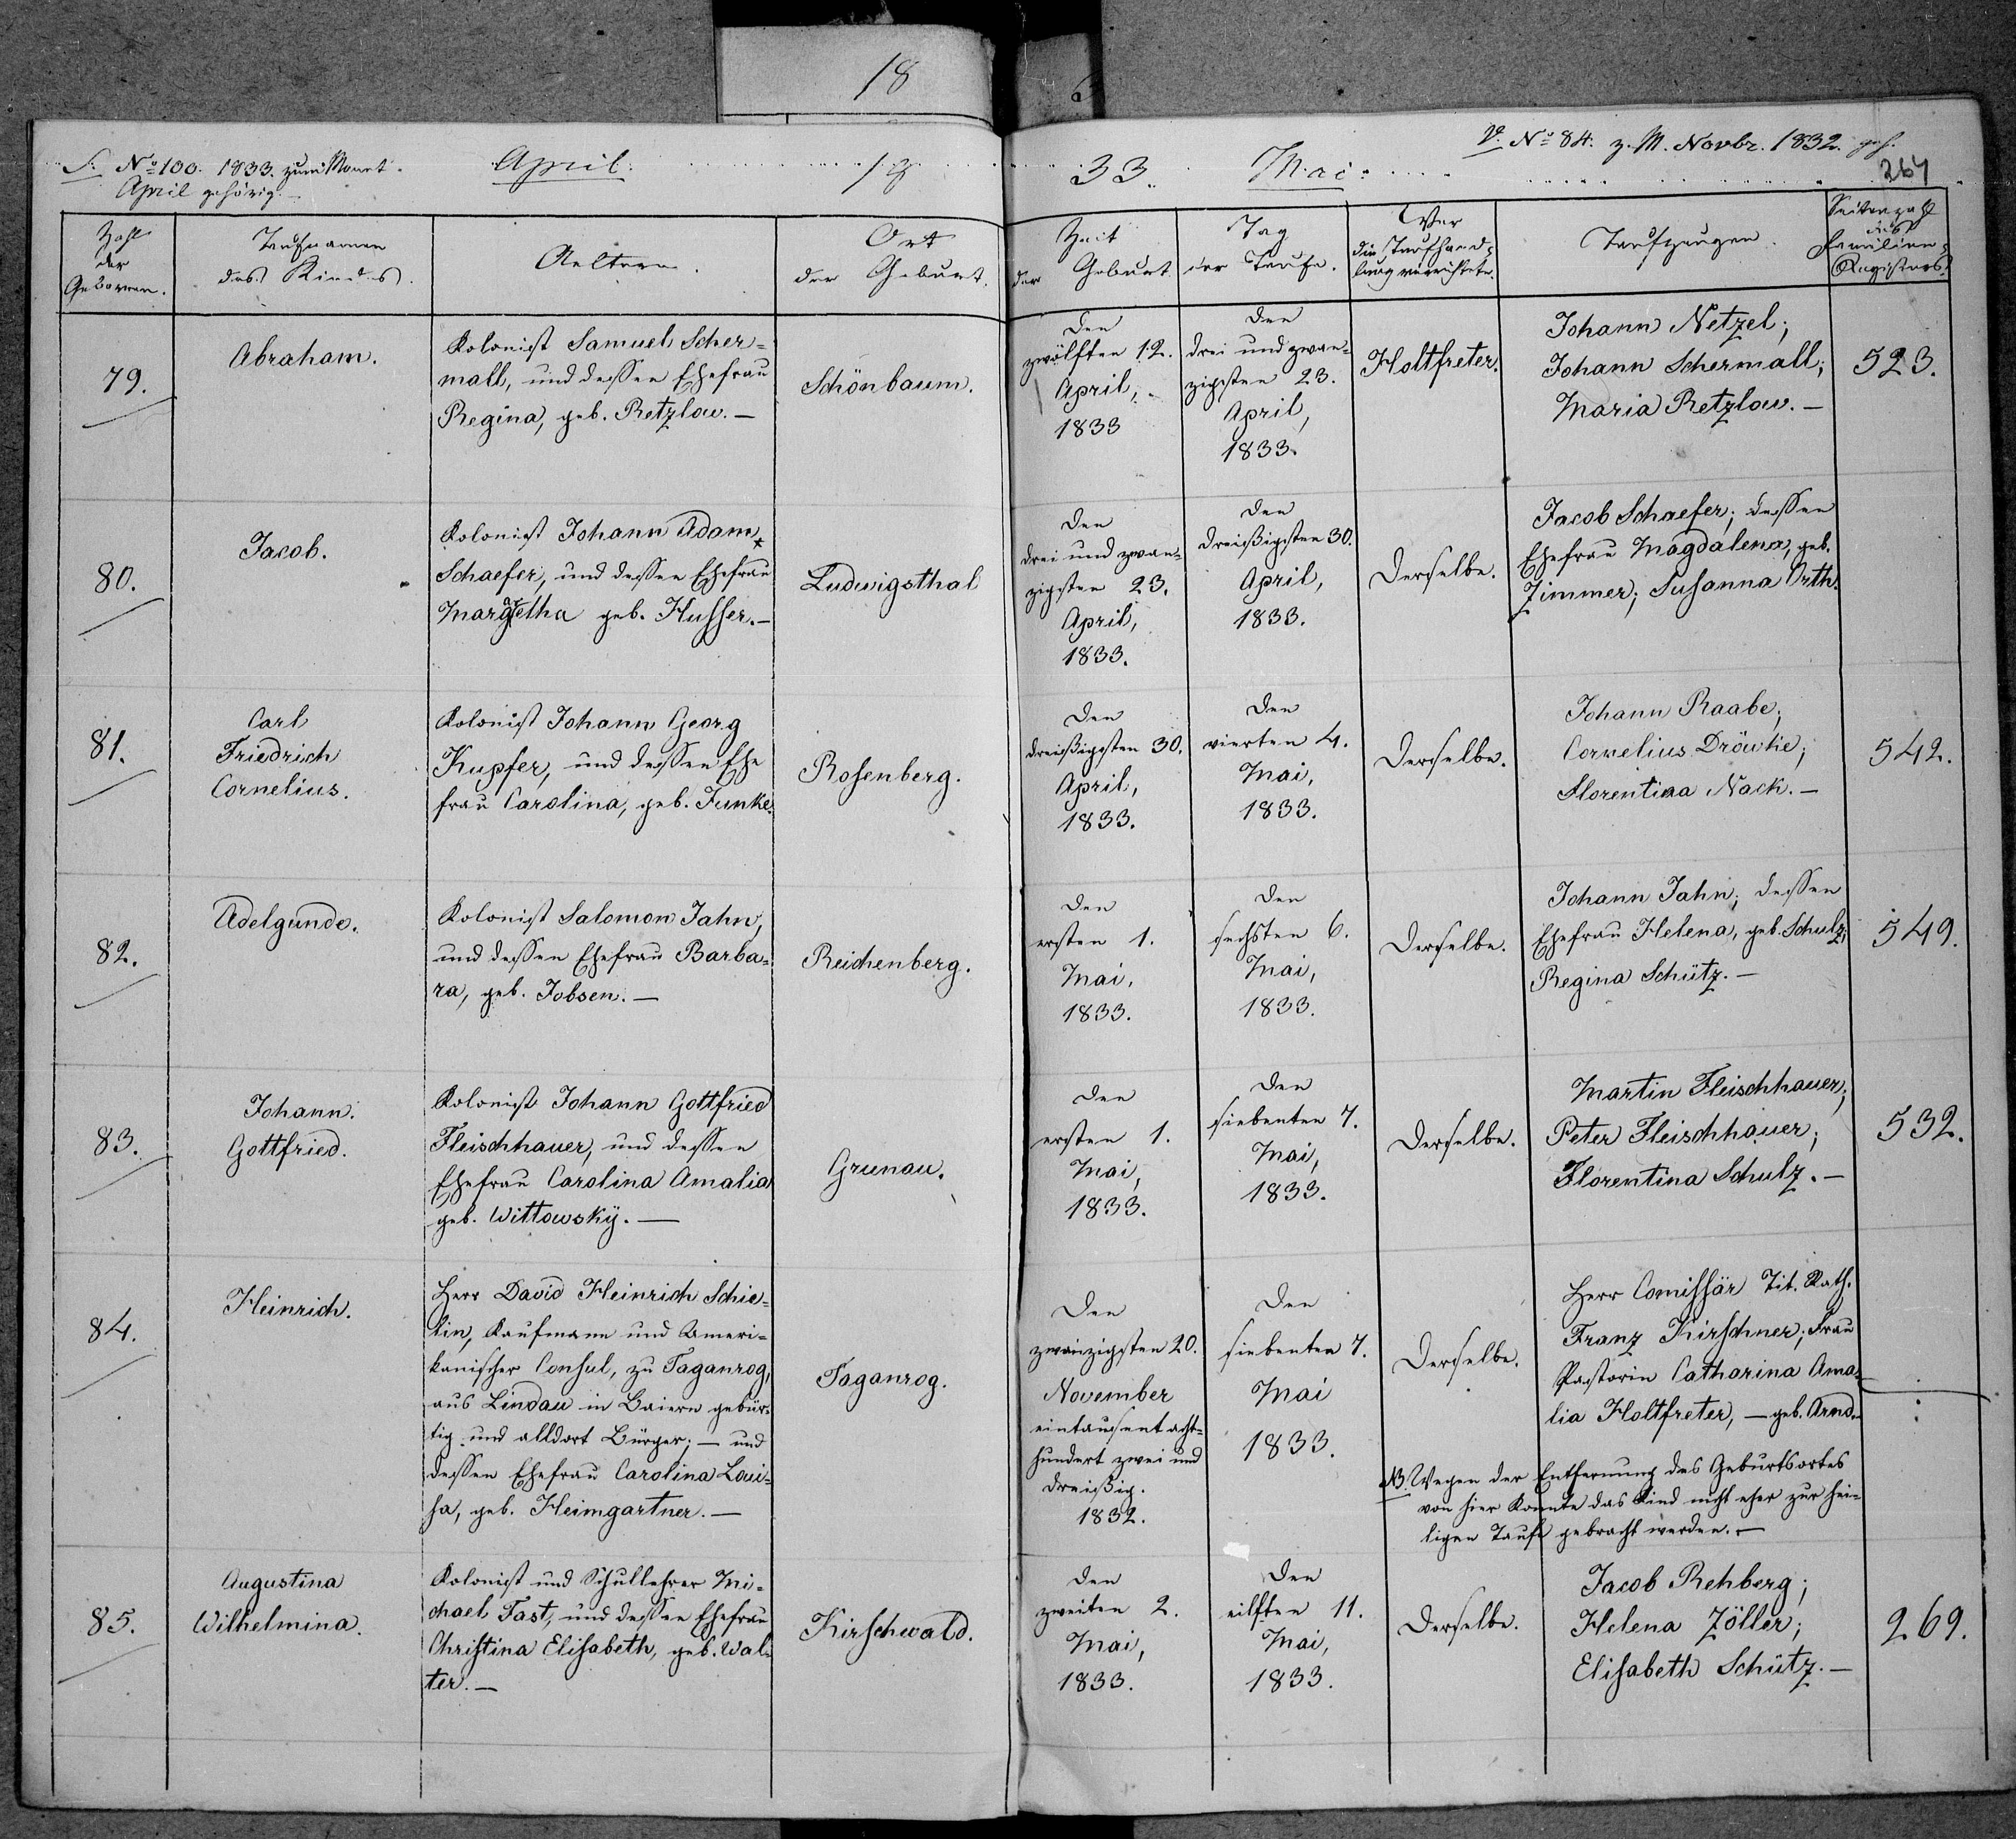 18
S. No 100. 1833. zum Monat
April gehörig.
April.
18
33.
Mai.
V. No 84. z. M. Novbr. 1832. geh.
264
Zahl
der
Gebornen.
Taufnamen
des Kindes.
Aeltern.
Ort
der Geburt.
Zeit
der Geburt
Tag
der Taufe.
Wer
die Taufhand-
lung verrichtete.
Taufzeugen.
Seitenzahl
des
Familien-
Registers.
79.
Abraham.
Kolonist Samuel Scher-
mall, und dessen Ehefrau
Regina, geb. Retzlow. —
Schönbaum.
Den
zwölften 12.
April,
1833
Den
drei und zwan-
zigsten 23.
April,
1833.
Holtfreter.
Johann Netzel;
Johann Schermall;
Maria Retzlow. —
523.
80.
Jacob.
Kolonist Johann Adam
Schaefer, und dessen Ehefrau
Margretha geb. Husser. —
Ludwigsthal
Den
drei und zwan-
zigsten 23.
April,
1833.
Den
dreißigsten 30.
April,
1833.
Derselbe.
Jacob Schaefer; dessen
Ehefrau Magdalena, geb.
Zimmer; Susanna Orth.
81.
Carl
Friedrich
Cornelius.
Kolonist Johann Georg
Kupfer, und dessen Ehe
frau Carolina, geb. Funke.
Rosenberg.
Den
dreißigsten 30.
April,
1833.
Den
vierten 4.
Mai,
1833.
Derselbe.
Johann Raabe;
Cornelius Dröwke;
Florentina Nack. —
542.
82.
Adelgunde.
Kolonist Salomon Jahn,
und dessen Ehefrau Barba-
ra, geb. Jobsen. —
Reichenberg.
Den
ersten 1.
Mai,
1833.
Den
sechsten 6.
Mai,
1833.
Derselbe.
Johann Jahn; dessen
Ehefrau Helena, geb. Schulz;
Regina Schütz. —
549.
83.
Johann.
Gottfried.
Kolonist Johann Gottfried
Fleischhauer, und dessen
Ehefrau Carolina Amalia
geb. Wittowsky. —
Grunau.
Den
ersten 1.
Mai,
1833.
Den
siebenten 7.
Mai,
1833.
Derselbe.
Martin Fleischhauer;
Peter Fleischhauer;
Florentina Schulz. —
532.
84.
Heinrich.
Herr David Heinrich Schie-
lin, Kaufmann und Ameri-
kanischer Consul, zu Taganrog,
aus Lindau in Baiern gebür-
tig und alldort Bürger; — und
dessen Ehefrau Carolina Loui-
sa, geb. Heimgartner. —
Taganrog.
Den
zwanzigsten 20.
November
eintausent acht-
hundert zwei und
dreißig.
1832.
Den
siebenten 7.
Mai
1833.
Derselbe.
Herr Comissär Tit. Rath.
Franz Kirschner; Frau
Pastorin Catharina Ama-
lia Holtfreter, — geb. Arnd.
NB. Wegen der Entfernung des Geburtsortes
von hier konnte das Kind nicht eher zur hei-
ligen Taufe gebracht werden. —
85.
Augustina
Wilhelmina.
Kolonist und Schullehrer Mi-
chael Fast, und dessen Ehefrau
Christina Elisabeth, geb. Wal-
ter. —
Kirschwald.
Den
zweiten 2.
Mai,
1833.
Den
eilften 11.
Mai,
1833.
Derselbe.
Jacob Rehberg;
Helena Zöller;
Elisabeth Schütz. —
269.